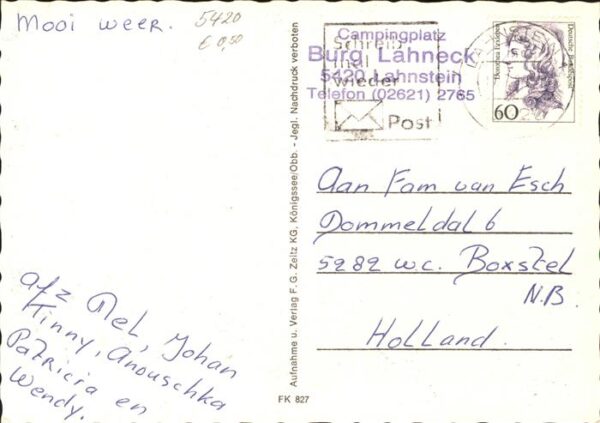 Mooi weer.
5420
€ 0,50
afz Nel, Johan
Hinny, Anouschka
Patricia en
Wendy.
Aufnahme u. Verlag F. G. Zeitz KG, Königssee/Obb. - Jegl. Nachdruck verboten
FK 827
Schreib
mal
wieder
Post
Campingplatz
Burg Lahneck
5420 Lahnstein
Telefon (02621) 2765
Deutsche Bundespost
60
Aan Fam van Esch
Dommeldal 6
5282 w.c. Boxstel
N.B.
Holland.